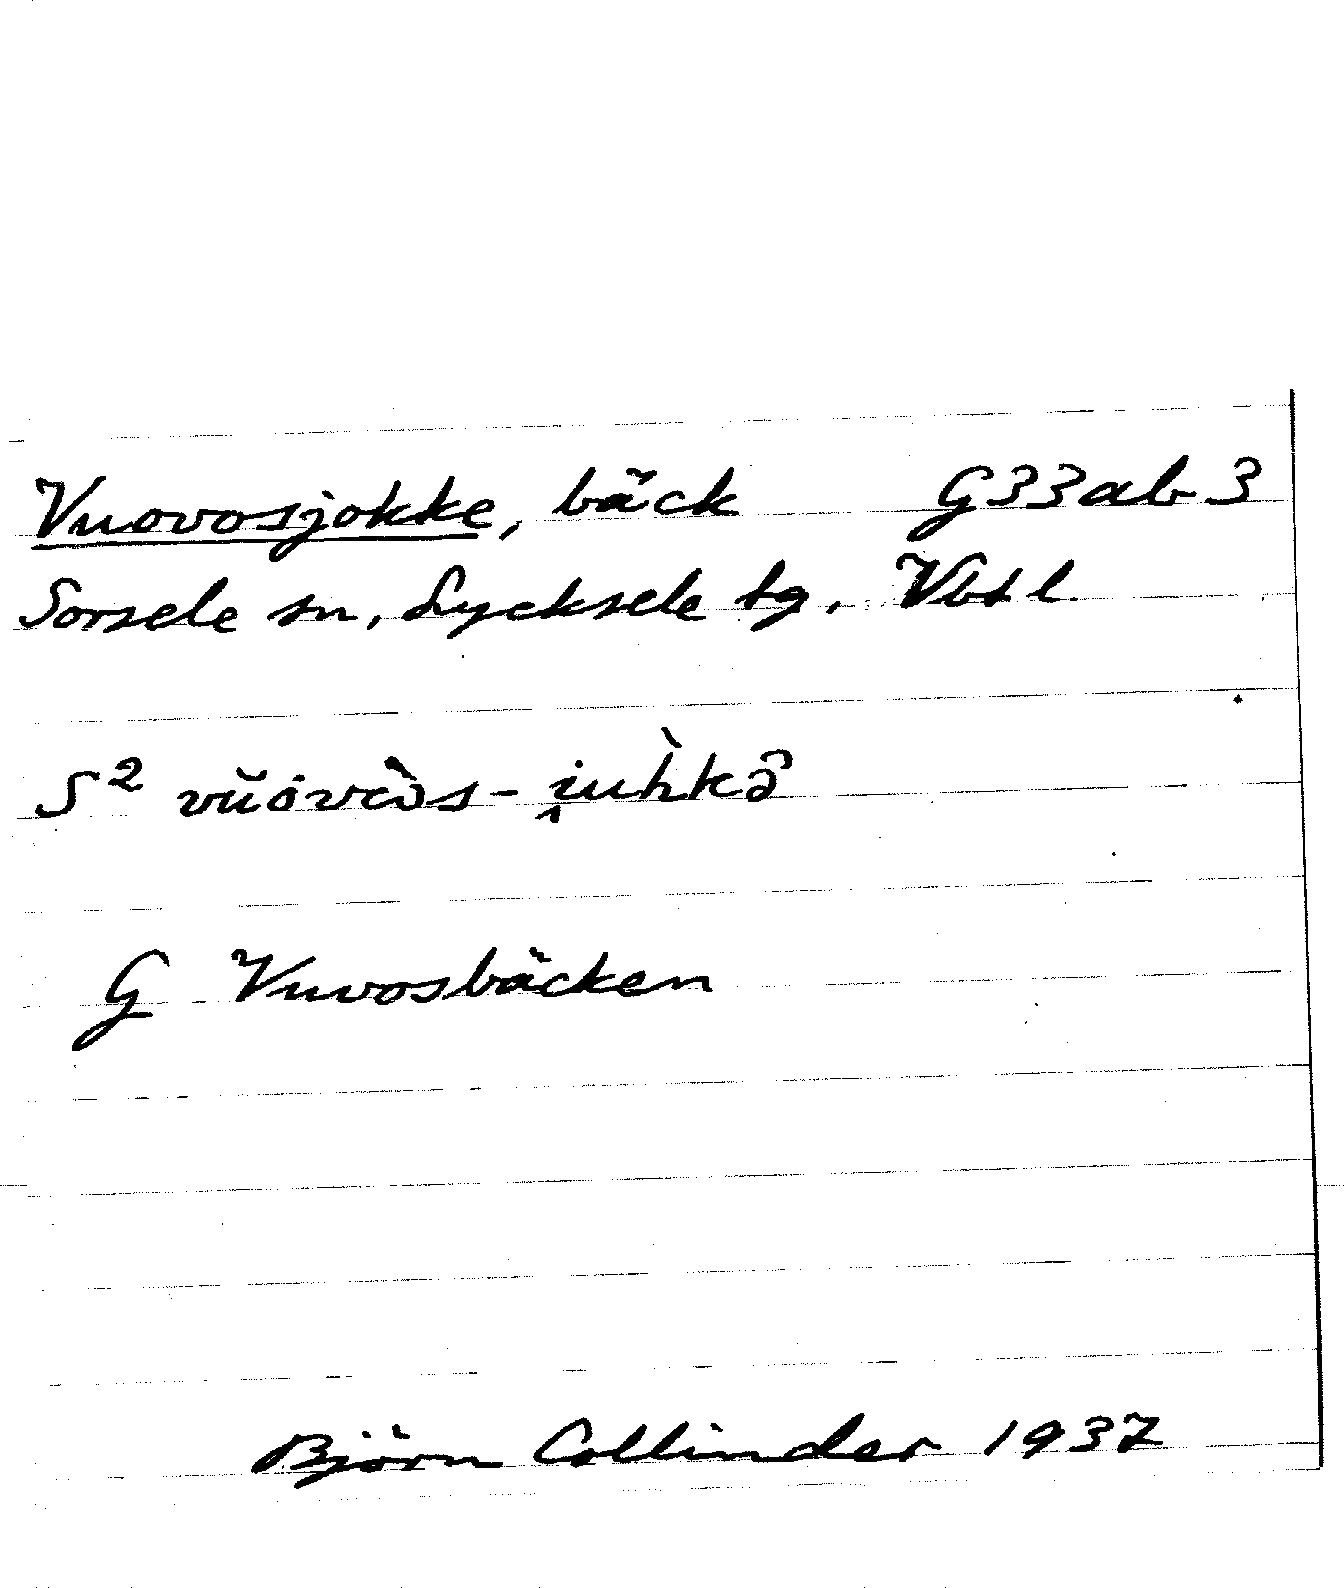 Vuovosjokke, bäck G33ab3
Sorsele sn, Lycksele tg. Vbtl
S² vŭȯvɛ̀ɔs - i̭uh̀kə̂
G Vuvosbäcken
Björn Collinder 1937